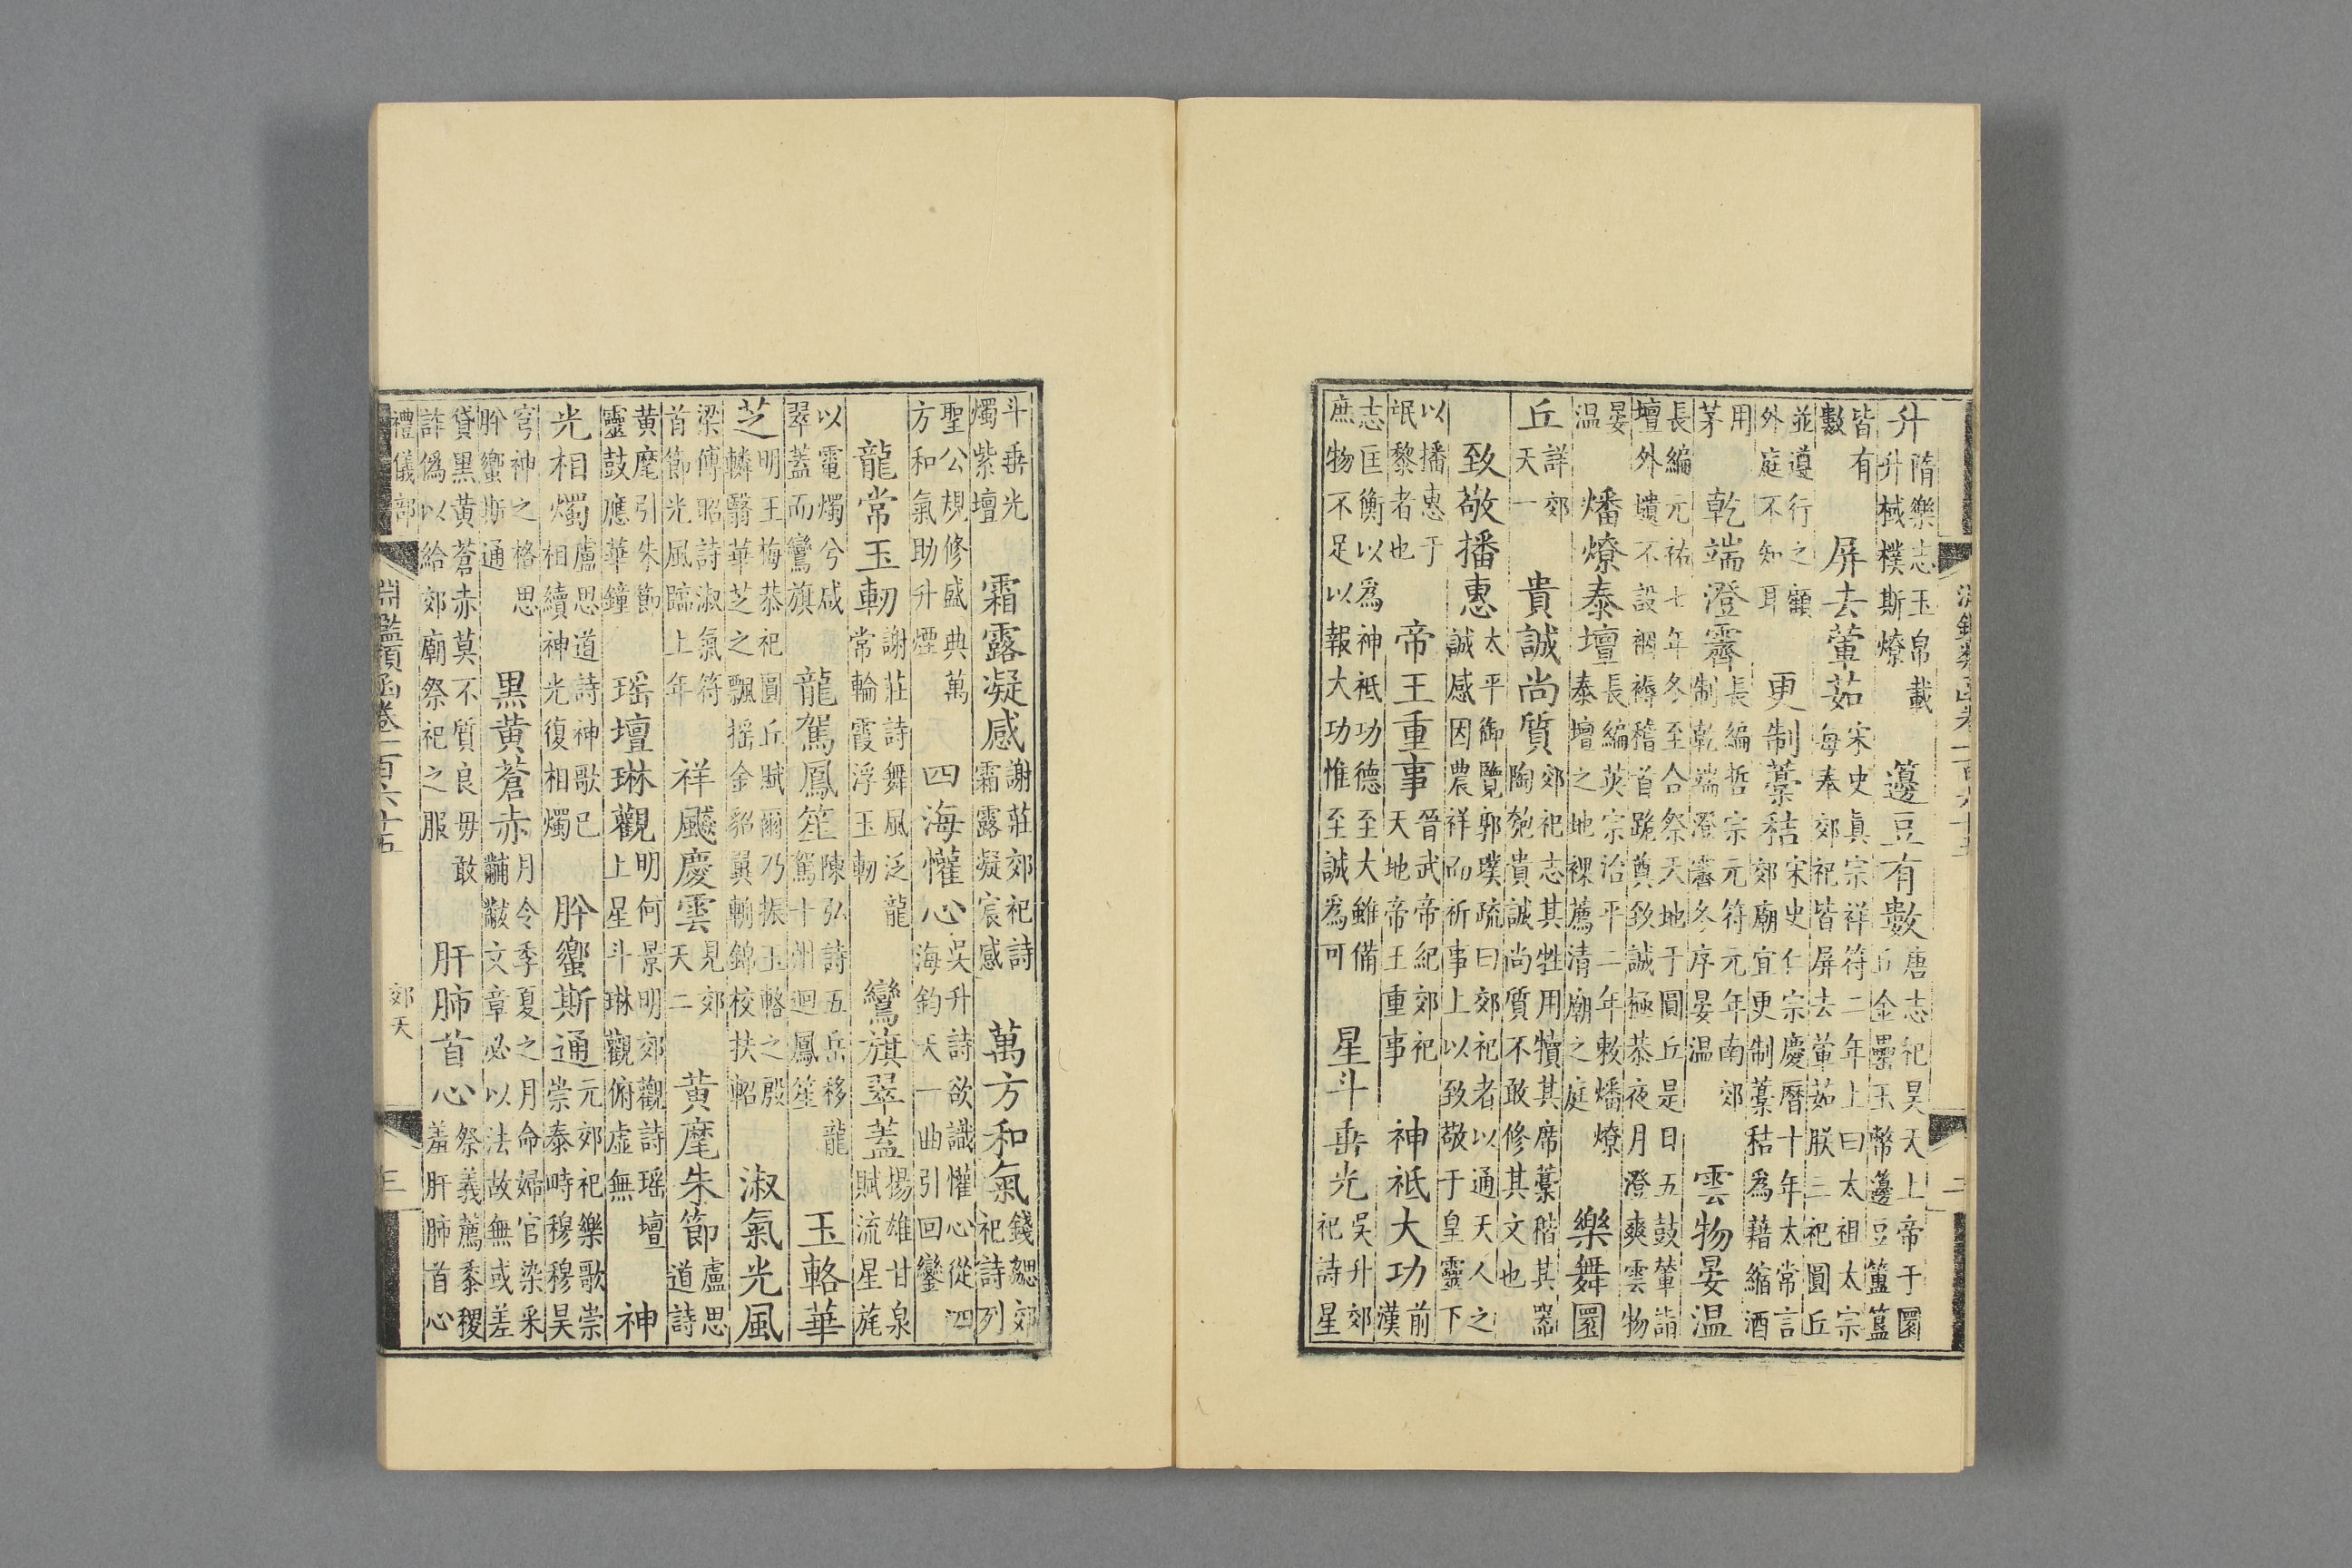 淵鑑類函卷一百六十五 二
升隋樂志玉帛載升棫樸斯燎籩豆有數唐志祀昊天上帝于圜丘金罍玉幣籩豆簠簋
皆有數屏去葷茹宋史真宗祥符二年上曰太祖太宗每奉郊祀皆屏去葷茹朕三祀圓丘
並遵行之顧外庭不知耳更制藁秸宋史仁宗慶曆十年太常言郊廟宜更制藁秸為藉縮酒
用茅乾端澄霽長編哲宗元符元年南郊制乾端澄霽冬序晏温雲物晏温
長編元祐七年冬至合祭天地于圓丘是日五鼓輦詣壇外壝不設裀褥稽首跪奠致誠極恭夜月澄爽雲物
晏温燔燎泰壇長編英宗治平二年敕燔燎泰壇之地祼薦清廟之庭樂舞圜
丘詳郊天一貴誠尚質郊祀志其牲用犢其席藁稭其器陶匏貴誠尚質不敢修其文也
致敬播惠太平御覽郭璞疏曰郊祀者以通天人之誠感因農祥而祈事上以致敬于皇靈下
以播惠于氓黎者也帝王重事晉武帝紀郊祀天地帝王重事神祗大功前漢
志匡衡以為神祗功德至大雖備庶物不足以報大功惟至誠為可星斗垂光吳升郊祀詩星
斗垂光燭紫壇霜露凝感謝莊郊祀詩霜露凝宸感萬方和氣錢勰郊祀詩列
聖公規修盛典萬方和氣助升煙四海懽心吳升詩欲識懽心從四海鈞天一曲引回鑾
龍常玉軔謝莊詩舞風泛龍常輪霞浮玉軔鸞旗翠蓋揚雄甘泉賦流星旄
以電燭兮咸翠蓋而鸞旗龍駕鳳笙陳弘詩五岳移龍駕十州迴鳳笙玉輅華
芝明王梅恭祀圓丘賦爾乃振玉輅之殷轔翳華芝之飄摇金貂翼輈錦校扶軺淑氣光風
梁傅昭詩淑氣符首節光風蹠上年祥飈慶雲見郊天二黄麾朱節盧思道詩
黄麾引朱節靈鼓應華鐘瑶壇琳觀明何景明郊觀詩瑶壇上星斗琳觀俯虛無神
光相燭盧思道詩神歌已相續神光復相燭肸蠁斯通元郊祀樂歌崇崇泰畤穆穆昊
穹神之格思肸蠁斯通黒黄蒼赤月令季夏之月命婦官染采黼黻文章必以法故無或差
貸黒黄蒼赤莫不質良毋敢詐偽以給郊廟祭祀之服肝肺首心祭義薦黍稷羞肝肺首心
禮儀部 淵鑑類函卷一百六十五 郊天 三